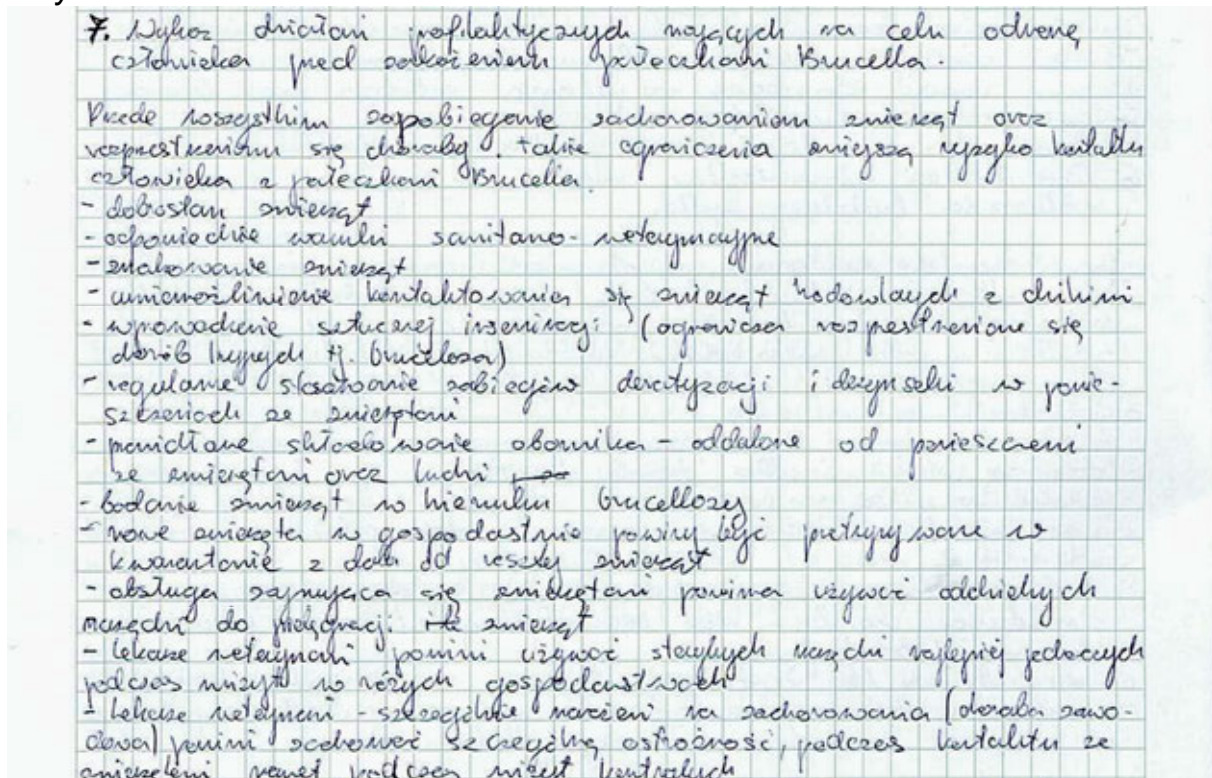 7. Wykaz działań profilaktycznych mających na celu ochronę
człowieka przed zakażeniem pałeczkami Brucella.
Przede wszystkim zapobieganie zachorowaniom zwierząt oraz
rozprzestrzenianiu się choroby. takie ograniczenia zmniejszą ryzyko kontaktu
człowieka z pałeczkami Brucella.
- dobrostan zwierząt
- odpowiednie warunki sanitarno-weterynaryjne
- znakowanie zwierząt
- uniemożliwienie kontaktowania się zwierząt hodowlanych z dzikimi
- wprowadzenie sztucznej inseminacji (ogranicza rozprzestrzenianie się
chorób innych tj. bruceloza)
- regularne stosowanie zabiegów deratyzacji i dezynsekcji w pomie-
szczeniach ze zwierzętami
- prawidłowe składowanie obornika - oddalone od pomieszczeń
ze zwierzętami oraz ludzi
- badanie zwierząt w kierunku brucellozy
- nowe zwierzęta w gospodarstwie powinny być przetrzymywane w
kwarantannie z dala od reszty zwierząt
- obsługa zajmująca się zwierzętami powinna używać oddzielnych
narzędzi do pielęgnacji zwierząt
- lekarze weterynarii powinni używać sterylnych narzędzi najlepiej
podczas wizyt w różnych gospodarstwach
- lekarze weterynarii - szczególnie narażeni na zachorowania (choroba zawo-
dowa) powinni zachować szczególną ostrożność, podczas kontaktu ze
zwierzętami nawet podczas wizyt kontrolnych